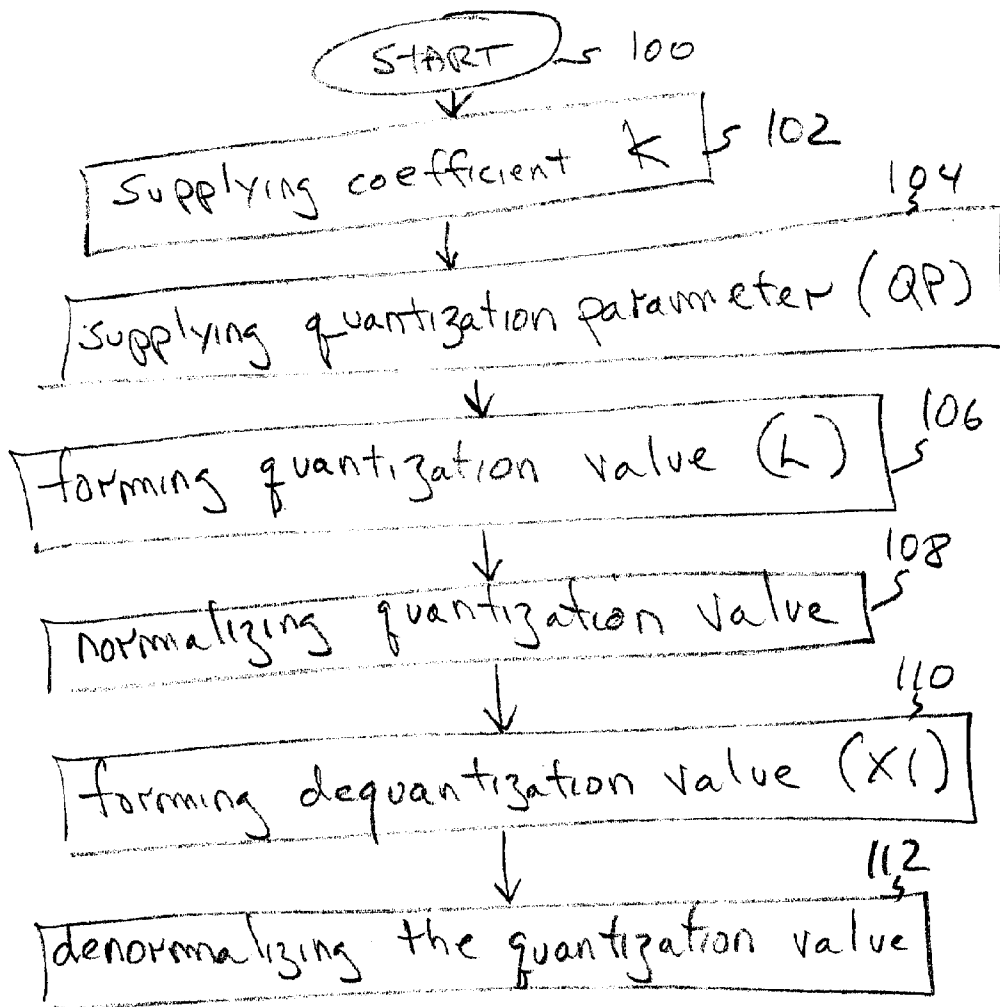 START 100
supplying coefficient K 102
104
supplying quantization parameter (QP)
106
forming quantization value (L)
108
normalizing quantization value
110
forming dequantization value (X1)
112
denormalizing the quantization value